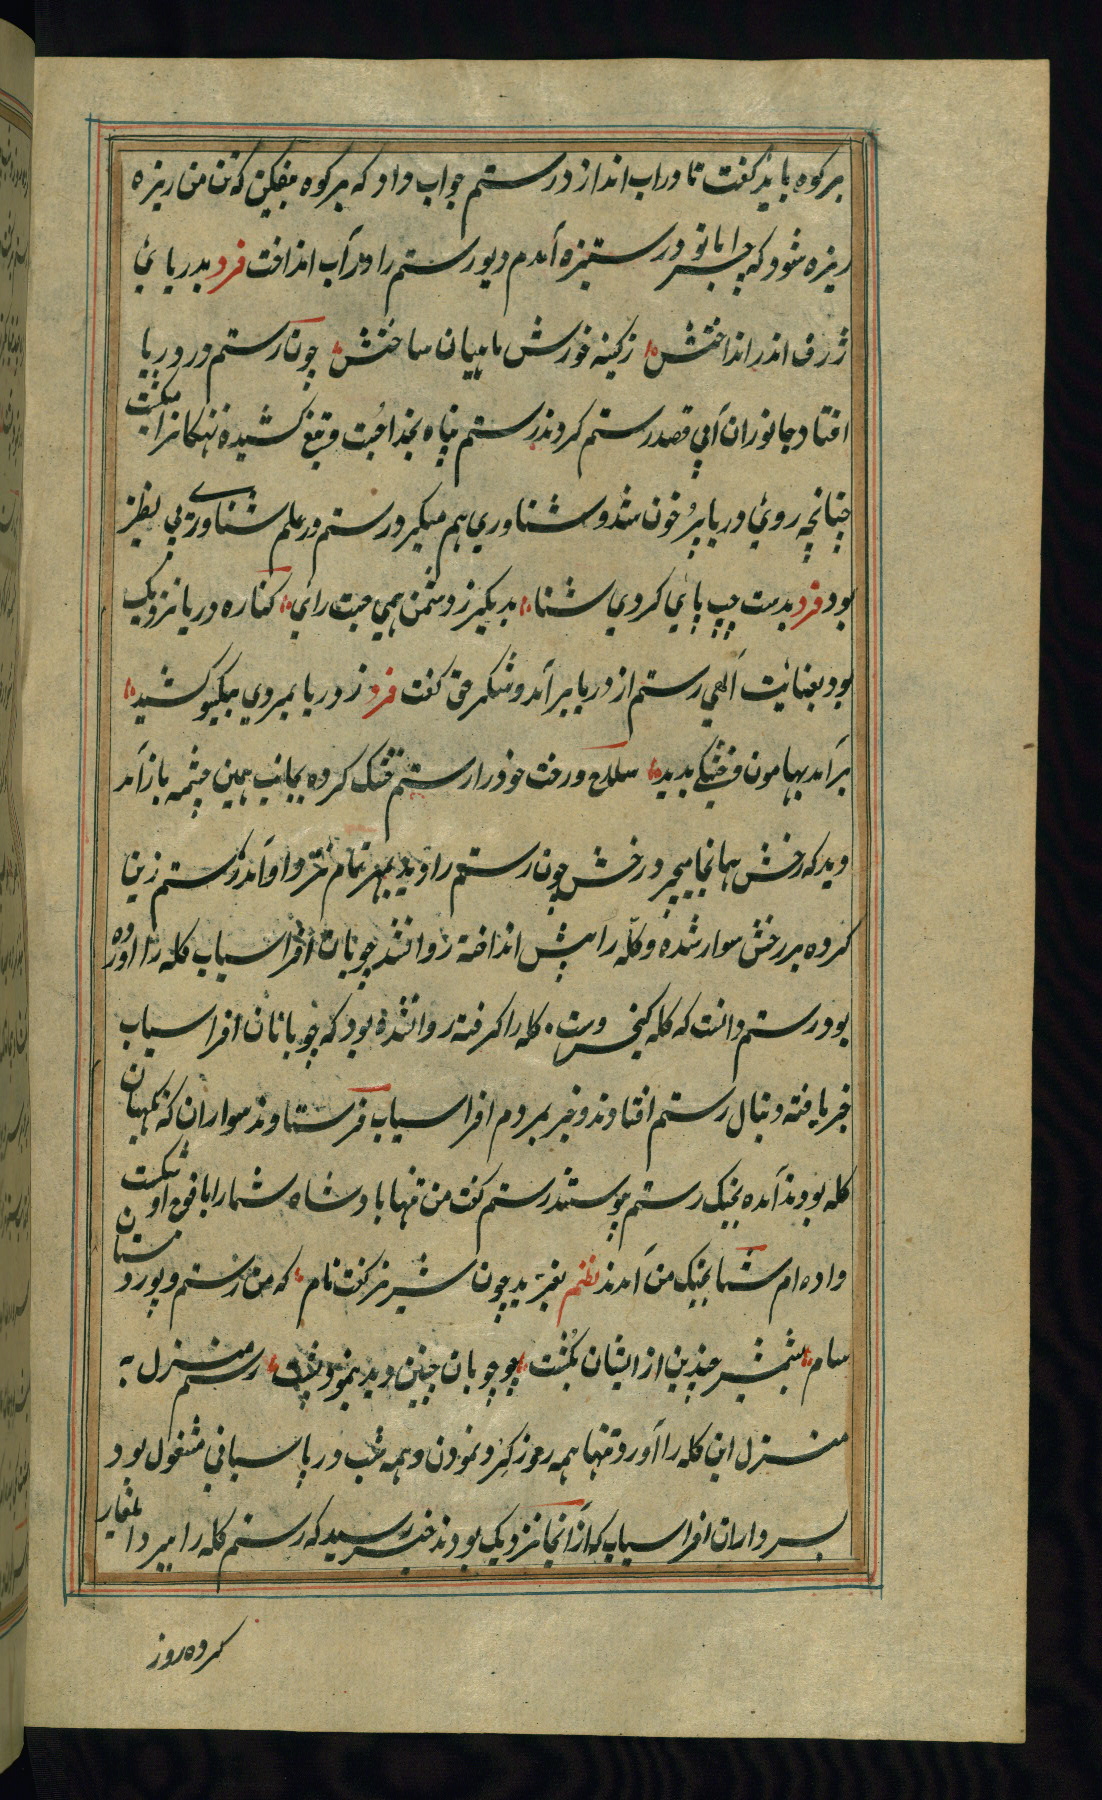 بر کوه باید گفت تا در اب اندازد رستم جواب داد که بر کوه بیفکن که تن من ریزه
ریزه شود که چرا با تو در ستیزه آمدم دیو رستم را در آب انداخت فرد بدریای
ژرف اندر انداختش زکینه خورش ماهیان ساختش چون رستم در دریا
افتاد جانوران آبی قصد رستم کردند رستم پناه بخدا جست و تیغ کشیده نهنگانرا میکشت
چنانچه روی دریا پر خون شد و شناوری هم میکرد رستم در علم شناوری بی نظیر
بود فرد بدست چپ پای کردی شنا بدیگر ز دشمن همی جست رای کناره دریا نزدیک
بود بعنایت الهی رستم از دریا بر آمد و شکر حق گفت فرد ز دریا بمردی بیکسو کشید
بر آمد بهامون و خشکی بدید سلاح و رخت خود را رستم خشک کرده بجانب همین چشمه باز آمد
دید که رخش همانجا میچرد رخش چون رستم را دید بمهر تمام نزد او آمد رستم زین
کرده بر رخش سوار شده و گله را پیش انداخته روانشد چوپان افراسیاب گله را آورده
بود رستم دانست که گله کیخسروست گله را گرفته روانشده بود که چوبانان افراسیاب
خبر یافته دنبال رستم افتادند و خبر بمردم افراسیاب فرستادند سواران که نگهبان
گله بودند آمده بجنگ رستم پیوستند رستم گفت من تنها بادشاه شما را با فوج او شکست
داده ام شما بجنگ من آمدند نظم بغرید چون شیر بر گفت نام که من رستم و پور دستان
سام بشمشیر چندین از ایشان بکشت چو چوبان چنین دید بنمود پشت رستم منزل به
منزل این گله را آورد تنها همه روز گرد نمودن و همه شب در پاسبانی مشغول بود
بسرداران افراسیاب که از آنجا نزدیک بودند خبر رسید که رستم گله را میبرد ایلغار
کرده روز